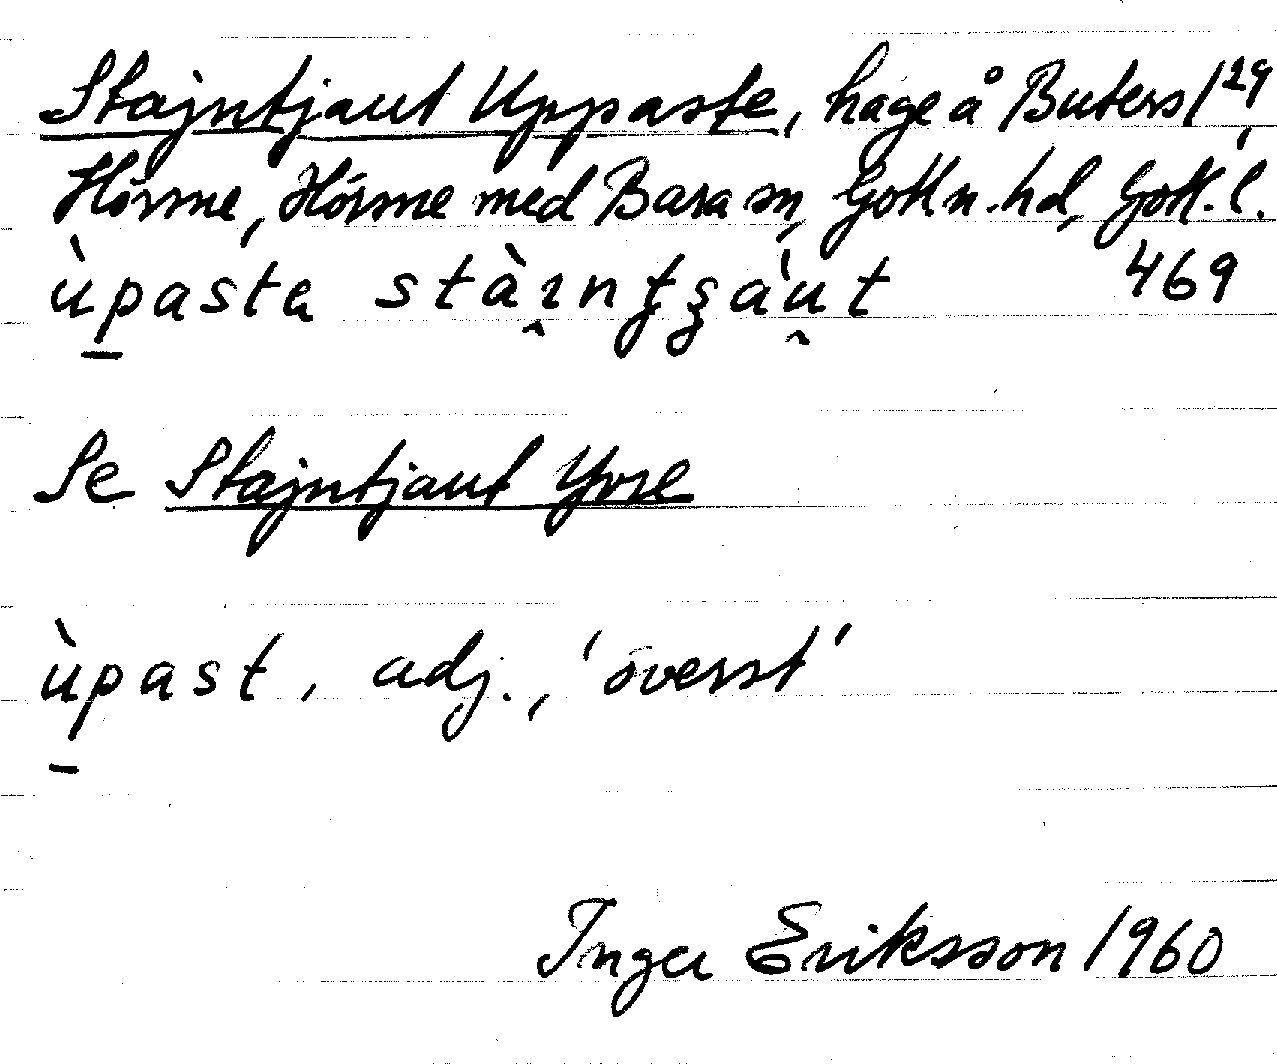 Stajntjaut Uppaste, hage å Buters 1²⁹,
Hörsne, Hörsne med Bara sn, Gotl n. hd, Gotl. l.
ùpasta stàɪntʂàut 469
Se Stajntjaut Yvre
ùpast, adj., 'överst'
Inger Eriksson 1960